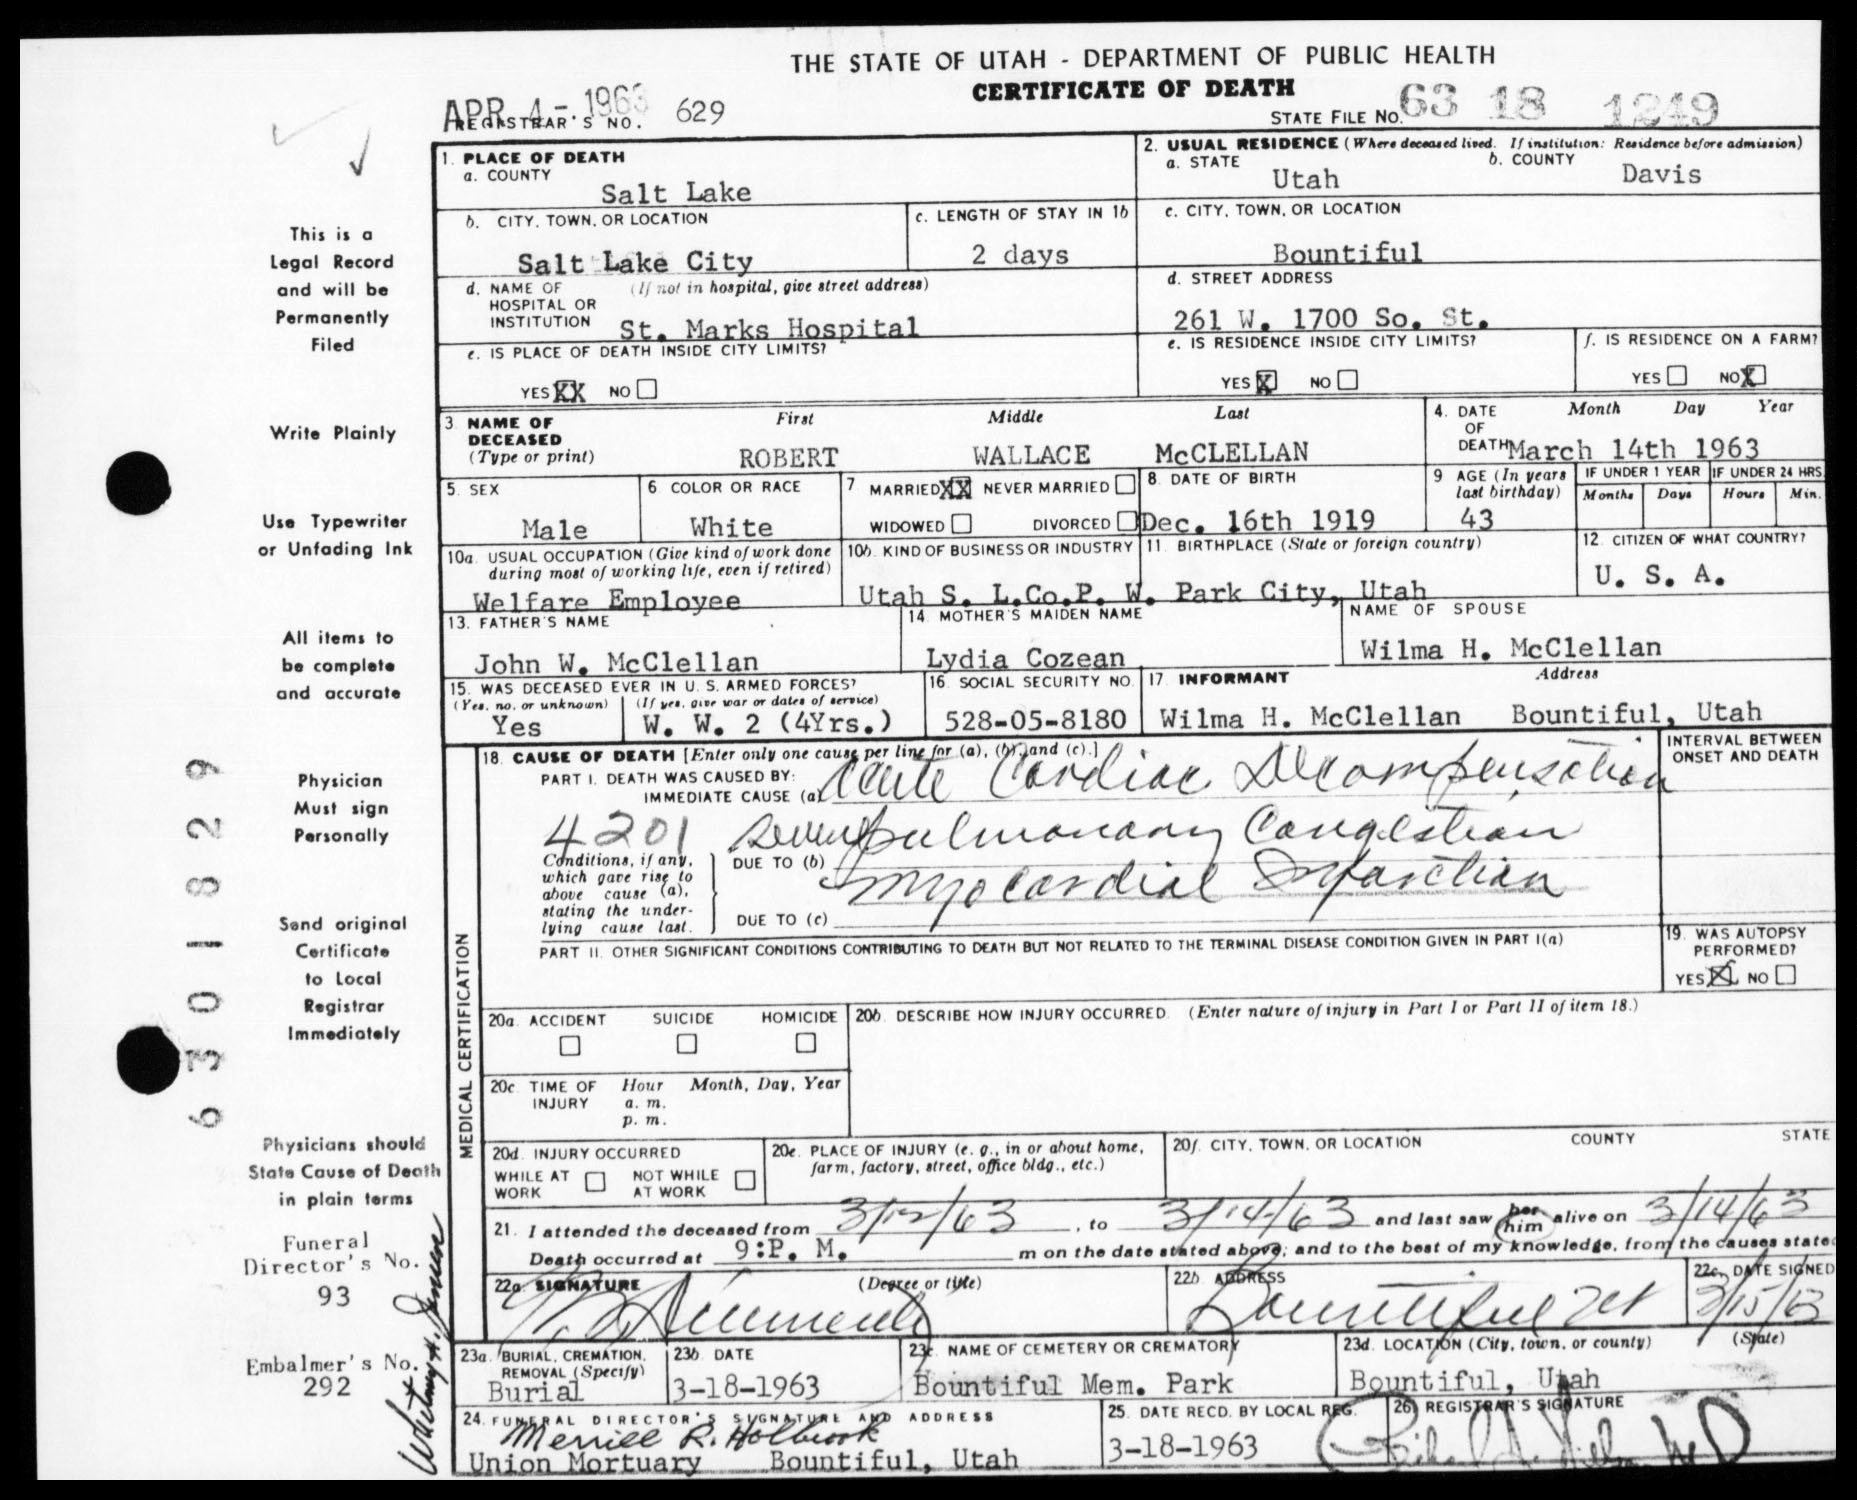 THE STATE OF UTAH - DEPARTMENT OF PUBLIC HEALTH
CERTIFICATE OF DEATH
APR 4 - 1963
REGISTRAR'S NO. 629
STATE FILE NO. 63 18 1249
This is a
Legal Record
and will be
Permanently
Filed
Write Plainly
Use Typewriter
or Unfading Ink
All items to
be complete
and accurate
Physician
Must sign
Personally
Send original
Certificate
to Local
Registrar
Immediately
Physicians should
State Cause of Death
in plain terms
Funeral
Director's No.
93
Embalmer's No.
292
6301829
1. PLACE OF DEATH
a. COUNTY
Salt Lake
2. USUAL RESIDENCE (Where deceased lived. If institution: Residence before admission)
a. STATE Utah b. COUNTY Davis
b. CITY, TOWN, OR LOCATION
Salt Lake City
c. LENGTH OF STAY IN 1b
2 days
c. CITY, TOWN, OR LOCATION
Bountiful
d. NAME OF HOSPITAL OR INSTITUTION (If not in hospital, give street address)
St. Marks Hospital
d. STREET ADDRESS
261 W. 1700 So. St.
e. IS PLACE OF DEATH INSIDE CITY LIMITS?
YES XX NO
e. IS RESIDENCE INSIDE CITY LIMITS?
YES X NO
f. IS RESIDENCE ON A FARM?
YES NO X
3. NAME OF DECEASED (Type or print)
First Middle Last
ROBERT WALLACE McCLELLAN
4. DATE OF DEATH Month Day Year
March 14th 1963
5. SEX
Male
6. COLOR OR RACE
White
7 MARRIED XX NEVER MARRIED
WIDOWED DIVORCED
8. DATE OF BIRTH
Dec. 16th 1919
9 AGE (In years last birthday)
43
IF UNDER 1 YEAR
Months Days
IF UNDER 24 HRS.
Hours Min.
10a. USUAL OCCUPATION (Give kind of work done during most of working life, even if retired)
Welfare Employee
10b. KIND OF BUSINESS OR INDUSTRY
Utah S. L.Co.P. W.
11. BIRTHPLACE (State or foreign country)
Park City, Utah
12. CITIZEN OF WHAT COUNTRY?
U. S. A.
13. FATHER'S NAME
John W. McClellan
14. MOTHER'S MAIDEN NAME
Lydia Cozean
NAME OF SPOUSE
Wilma H. McClellan
15. WAS DECEASED EVER IN U. S. ARMED FORCES?
(Yes, no, or unknown) (If yes, give war or dates of service)
Yes W. W. 2 (4Yrs.)
16. SOCIAL SECURITY NO.
528-05-8180
17. INFORMANT Address
Wilma H. McClellan Bountiful, Utah
MEDICAL CERTIFICATION
18. CAUSE OF DEATH [Enter only one cause per line for (a), (b), and (c).]
INTERVAL BETWEEN ONSET AND DEATH
PART I. DEATH WAS CAUSED BY:
IMMEDIATE CAUSE (a) Acute Cardiac Decompensation
4201 Severe pulmonary Congestion
Conditions, if any, which gave rise to above cause (a), stating the underlying cause last.
DUE TO (b) myocardial Infarction
DUE TO (c)
PART II. OTHER SIGNIFICANT CONDITIONS CONTRIBUTING TO DEATH BUT NOT RELATED TO THE TERMINAL DISEASE CONDITION GIVEN IN PART I(a)
19. WAS AUTOPSY PERFORMED?
YES X NO
20a. ACCIDENT SUICIDE HOMICIDE
20b. DESCRIBE HOW INJURY OCCURRED. (Enter nature of injury in Part I or Part II of item 18.)
20c. TIME OF INJURY Hour Month, Day, Year
a. m.
p. m.
20d. INJURY OCCURRED
WHILE AT WORK NOT WHILE AT WORK
20e. PLACE OF INJURY (e. g., in or about home, farm, factory, street, office bldg., etc.)
20f. CITY, TOWN, OR LOCATION COUNTY STATE
21. I attended the deceased from 3/12/63, to 3/14/63 and last saw her him alive on 3/14/63
Death occurred at 9:P. M. m on the date stated above; and to the best of my knowledge, from the causes stated
22a. SIGNATURE (Degree or title)
22b. ADDRESS
Bountiful Ut
22c. DATE SIGNED
3/15/63
23a. BURIAL, CREMATION, REMOVAL (Specify)
Burial
23b. DATE
3-18-1963
23c. NAME OF CEMETERY OR CREMATORY
Bountiful Mem. Park
23d. LOCATION (City, town, or county) (State)
Bountiful, Utah
24. FUNERAL DIRECTOR'S SIGNATURE AND ADDRESS
Merrill R. Holbrook
Union Mortuary Bountiful, Utah
25. DATE RECD. BY LOCAL REG.
3-18-1963
26 REGISTRAR'S SIGNATURE